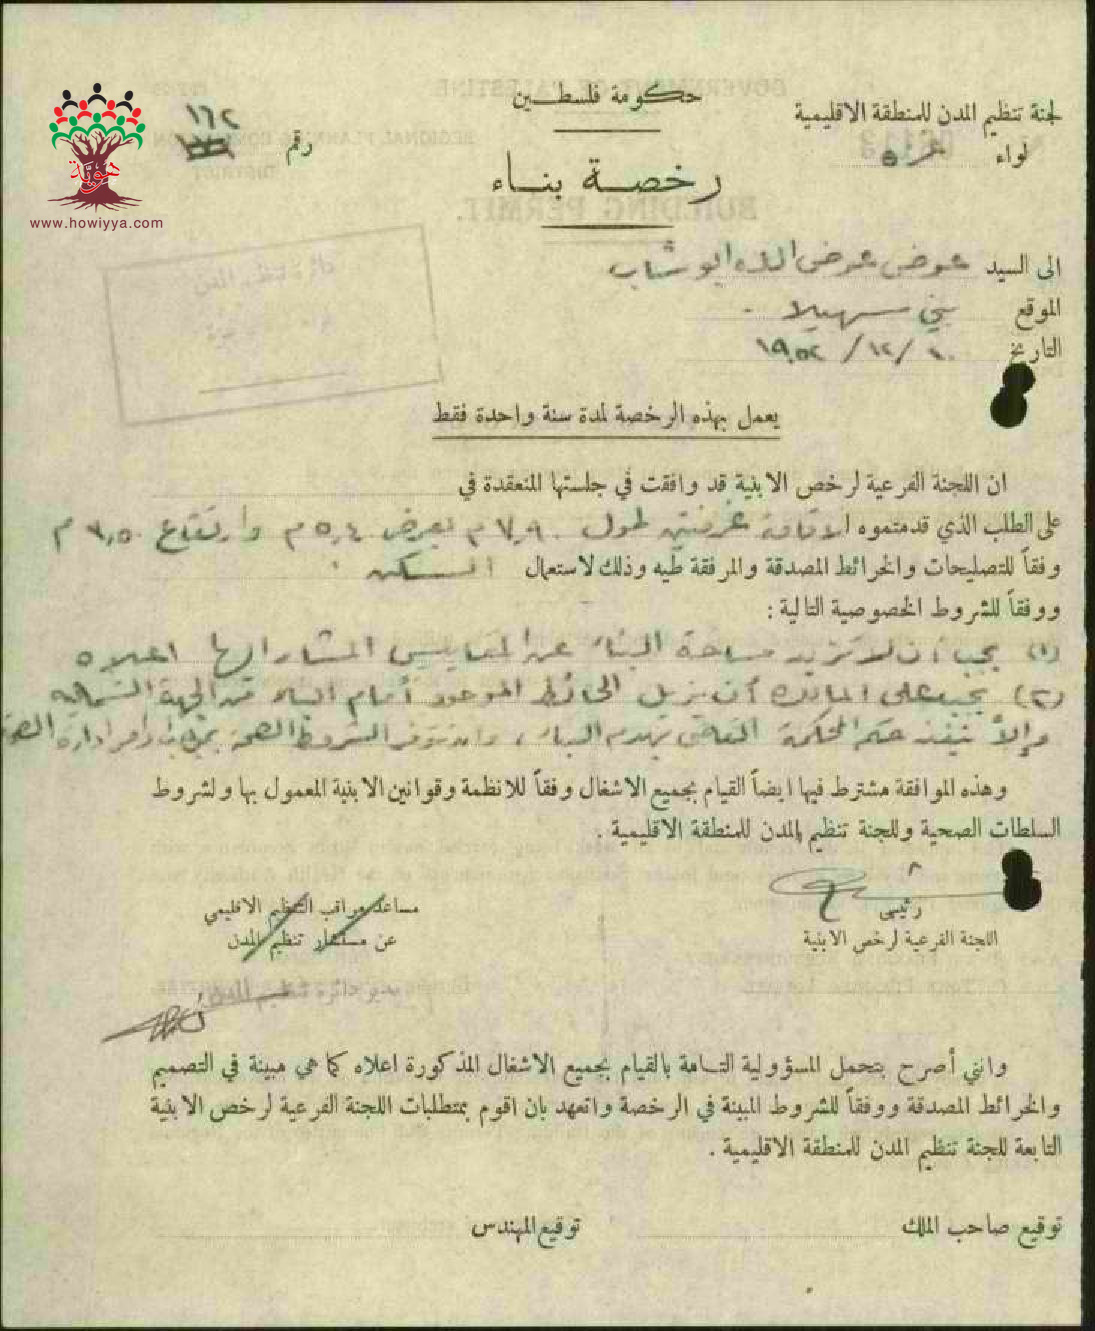 حكومة فلسطين
لجنة تنظيم المدن للمنطقة الاقليمية
لواء غزه
رقم ١٦٢
رخصة بناء
هوية
www.howiyya.com
الى السيد عوض عوض الله ابو شاب
الموقع بني سهيلا
التاريخ ١٩٥٢/١٢/٢٠
يعمل بهذه الرخصة لمدة سنة واحدة فقط
ان اللجنة الفرعية لرخص الابنية قد وافقت في جلستها المنعقدة في
على الطلب الذي قدمتموه لاقامة غرفتين لطول ٧,٩٠ م بعرض ٥,٤ م وارتفاع ٣,٥٠ م
وفقاً للتصليحات والخرائط المصدقة والمرفقة طيه وذلك لاستعمال السكن
ووفقاً للشروط الخصوصية التالية :
(١) يجب أن لا تزيد مساحة البناء عن المقاييس المشار اليها اعلاه
(٢) يجب على المالك أن يزيل الحائط الموجود أمام البناء من الجهة الشمالية
وإلا تنفذ حكم المحكمة القاضي بهدم البناء ، وان تتوفر الشروط الصحية ادارة الصحة
وهذه الموافقة مشترط فيها ايضاً القيام بجميع الاشغال وفقاً للانظمة وقوانين الابنية المعمول بها ولشروط
السلطات الصحية وللجنة تنظيم المدن للمنطقة الاقليمية .
رئيس
اللجنة الفرعية لرخص الابنية
مساعد مراقب التنظيم الاقليمي
عن مستشار تنظيم المدن
مدير دائرة تنظيم المدن
وانني أصرح بتحمل المسؤولية التامة بالقيام بجميع الاشغال المذكورة اعلاه كما هي مبينة في التصميم
والخرائط المصدقة ووفقاً للشروط المبينة في الرخصة واتعهد بان اقوم بمتطلبات اللجنة الفرعية لرخص الابنية
التابعة للجنة تنظيم المدن للمنطقة الاقليمية .
توقيع صاحب الملك
توقيع المهندس